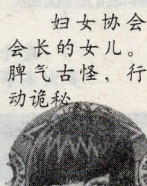 妇女协会
会长的女儿。
脾气古怪，行
动诡秘